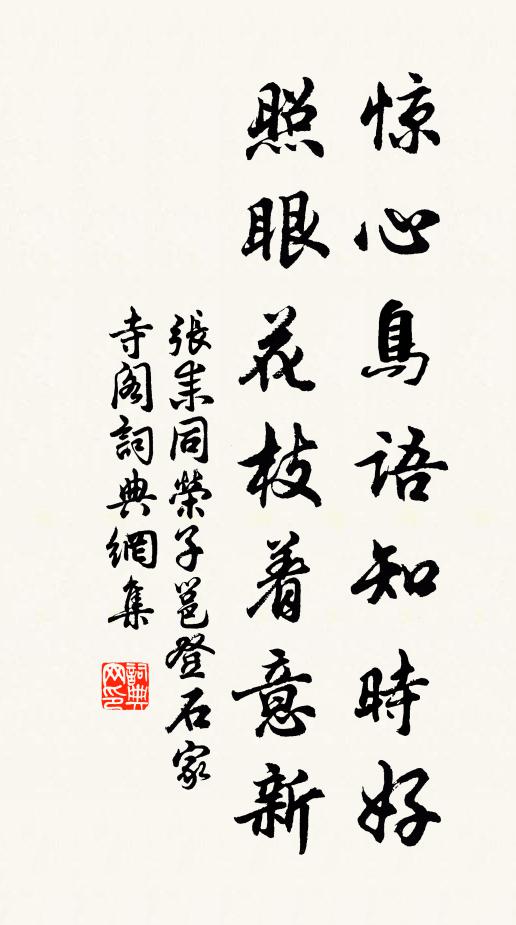 惊心鳥语知時好
照眼花枝着意新
張耒同榮子邕登石家
寺阁詞典網集
詞典
网印